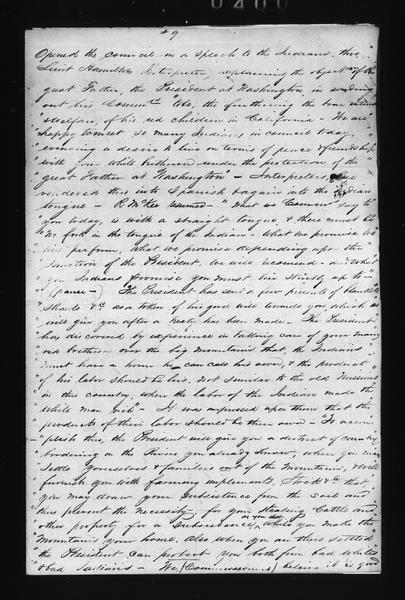 9
Opened the council in a speech to the Indians, thro'
Lieut Hamilton Interpreter, explaining the object of the
"great Father, the President at Washington, in sending
out his Comm
welfare, of his red children in California - We are
"happy to meet so many Indians in council today
evincing a desire to live on terms of peace & friendship
with your white brethren under the protection of the
"great Father at Washington" - Interpreter
rendered this into Spanish & again into the Indian
tongue - R McKee resumed - "What we Commrs say to
"you today, is with a straight tongue, & there must be
"no fork in the tongue of the Indian - What we promise we
will perform, What we promise depending upon the
"sanction of the President, we will recommend - and what
you Indians promise you must live strictly up to"
(pause -) The President has sent a few presents of blankets
"Shawls &c as a token of his good will towards you which we
will give you after a treaty has been made - The President
has discovered by experience in taking care of your many
red brethren over the big mountains that, the Indians
must have a home he can call his own, & the product
"of his labor should be his, not similar to the old Missions
in this country, where the labor of the Indian made the
"white man rich" - It was impressed upon them that the
products of their labor should be their own - "To accom
"plish this, the President will give you a district of country
bordering on the Rivers you already know, where you may
settle yourselves & families out of the mountains, & will
furnish you with farming implements, Stock &c that
you may draw your subsistence from the soil and
thus prevent the necessity, for your stealing Cattle and
other property for a subsistence, when you make the
"mountains your home. Also when you are thus settled
the President can protect you both from bad whites
"& bad Indians - We (Commissioners) believe it is good